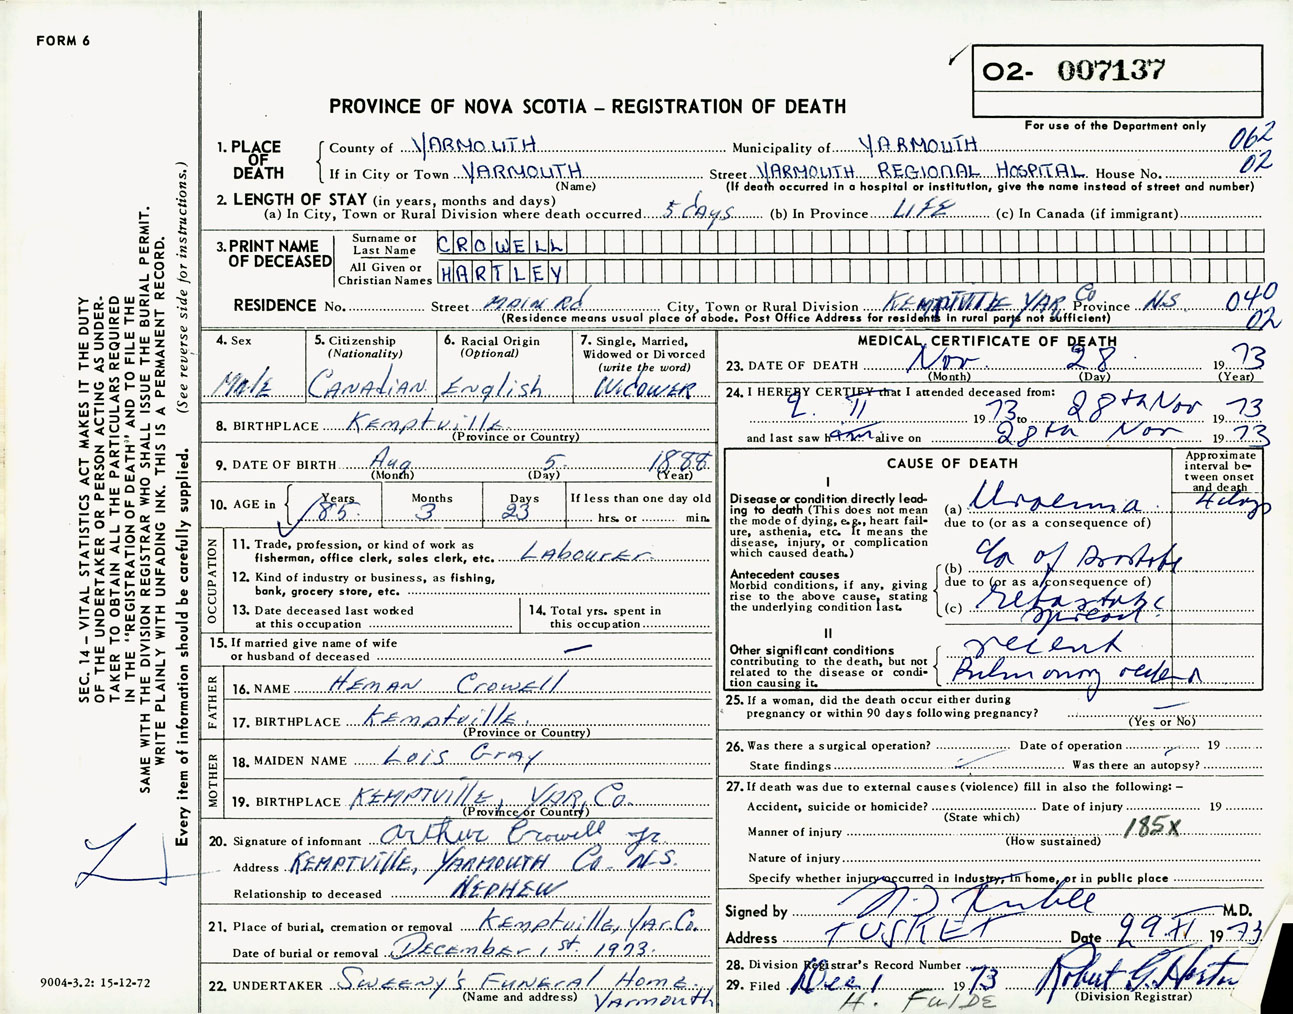 FORM 6
O2- 007137
PROVINCE OF NOVA SCOTIA – REGISTRATION OF DEATH
For use of the Department only
1. PLACE OF DEATH
County of YARMOUTH Municipality of YARMOUTH 062
If in City or Town YARMOUTH Street YARMOUTH REGIONAL HOSPITAL House No. 02
(Name) (If death occurred in a hospital or institution, give the name instead of street and number)
2. LENGTH OF STAY (in years, months and days)
(a) In City, Town or Rural Division where death occurred 5 days (b) In Province LIFE (c) In Canada (if immigrant)
3. PRINT NAME OF DECEASED
Surname or Last Name CROWELL
All Given or Christian Names HARTLEY
RESIDENCE No. Street MAIN Rd City, Town or Rural Division KEMPTVILLE YAR Co Province N.S. 040
(Residence means usual place of abode. Post Office Address for residents in rural parts not sufficient) 02
4. Sex
Male
5. Citizenship
(Nationality)
CANADIAN
6. Racial Origin
(Optional)
English
7. Single, Married,
Widowed or Divorced
(write the word)
WIDOWER
8. BIRTHPLACE Kemptville
(Province or Country)
9. DATE OF BIRTH Aug 5 1888
(Month) (Day) (Year)
10. AGE in
Years
85
Months
3
Days
23
If less than one day old
hrs. or min.
OCCUPATION
11. Trade, profession, or kind of work as
fisherman, office clerk, sales clerk, etc. Labourer
12. Kind of industry or business, as fishing,
bank, grocery store, etc.
13. Date deceased last worked
at this occupation
14. Total yrs. spent in
this occupation
15. If married give name of wife
or husband of deceased —
FATHER
16. NAME HEMAN Crowell
17. BIRTHPLACE Kemptville
(Province or Country)
MOTHER
18. MAIDEN NAME Lois Gray
19. BIRTHPLACE KEMPTVILLE, YAR, Co.
(Province or Country)
20. Signature of informant Arthur Crowell Jr
Address KEMPTVILLE, YARMOUTH Co. N.S.
Relationship to deceased NEPHEW
21. Place of burial, cremation or removal Kemptville, Yar. Co.
Date of burial or removal December 1st. 1973.
22. UNDERTAKER Sweeny's Funeral Home.
(Name and address) Yarmouth
MEDICAL CERTIFICATE OF DEATH
23. DATE OF DEATH Nov 28 1973
(Month) (Day) (Year)
24. I HEREBY CERTIFY that I attended deceased from:
1973 to 28th Nov 1973
and last saw alive on 28th Nov 1973
CAUSE OF DEATH
Approximate
interval be-
tween onset
and death
I
Disease or condition directly lead-
ing to death (This does not mean
the mode of dying, e.g., heart fail-
ure, asthenia, etc. It means the
disease, injury, or complication
which caused death.)
(a) Uraemia 4 days
due to (or as a consequence of)
Antecedent causes
Morbid conditions, if any, giving
rise to the above cause, stating
the underlying condition last.
(b) Ca of Prostate
due to (or as a consequence of)
(c) Metastatic
spread.
II
Other significant conditions
contributing to the death, but not
related to the disease or condi-
tion causing it.
recent
Pulmonary oedema
25. If a woman, did the death occur either during
pregnancy or within 90 days following pregnancy? —
(Yes or No)
26. Was there a surgical operation? Date of operation 19
State findings Was there an autopsy?
27. If death was due to external causes (violence) fill in also the following: –
Accident, suicide or homicide? Date of injury 19
(State which)
Manner of injury 185X
(How sustained)
Nature of injury
Specify whether injury occurred in Industry, in home, or in public place
Signed by M.D.
Address TUSKET Date 29 II 1973
28. Division Registrar's Record Number
29. Filed Dec 1 1973 Robert G.
(Division Registrar)
SEC. 14 – VITAL STATISTICS ACT MAKES IT THE DUTY
OF THE UNDERTAKER OR PERSON ACTING AS UNDER-
TAKER TO OBTAIN ALL THE PARTICULARS REQUIRED
IN THE "REGISTRATION OF DEATH" AND TO FILE THE
SAME WITH THE DIVISION REGISTRAR WHO SHALL ISSUE THE BURIAL PERMIT.
WRITE PLAINLY WITH UNFADING INK. THIS IS A PERMANENT RECORD.
Every item of information should be carefully supplied. (See reverse side for instructions.)
9004-3.2: 15-12-72